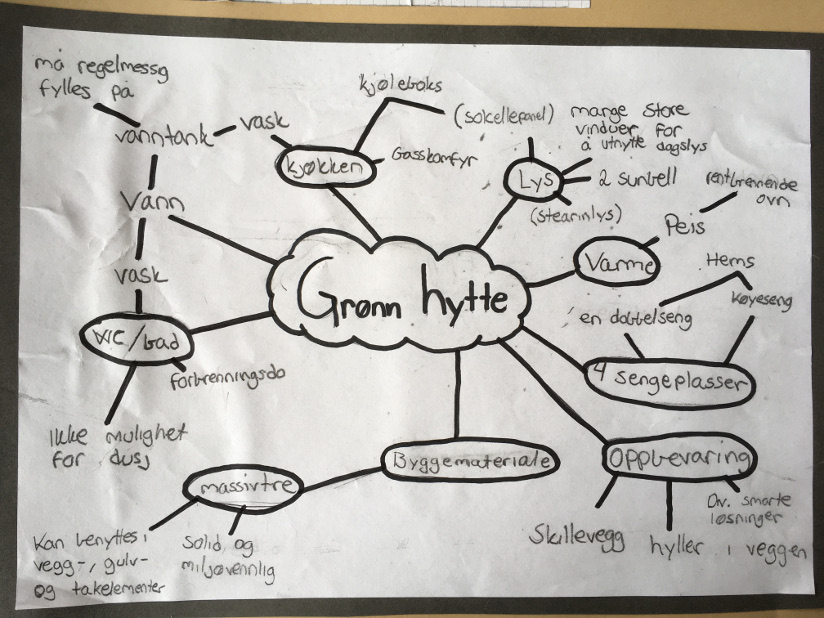 må regelmessig
fylles på
vanntank
vask
kjøleboks
kjøkken
Gasskomfyr
(solcellepanel)
mange store
vinduer for
å utnytte dagslys
Lys
2 sunbell
(stearinlys)
rentbrennende
ovn
Peis
Varme
Vann
vask
WC/bad
forbrenningsdo
Ikke mulighet
for dusj
Grønn hytte
Hems
køyeseng
en dobbelseng
4 sengeplasser
Oppbevaring
Div. smarte
løsninger
Skillevegg
hyller i veggen
Byggemateriale
massivtre
Kan benyttes i
vegg-, gulv-
og takelementer
Solid og
miljøvennlig